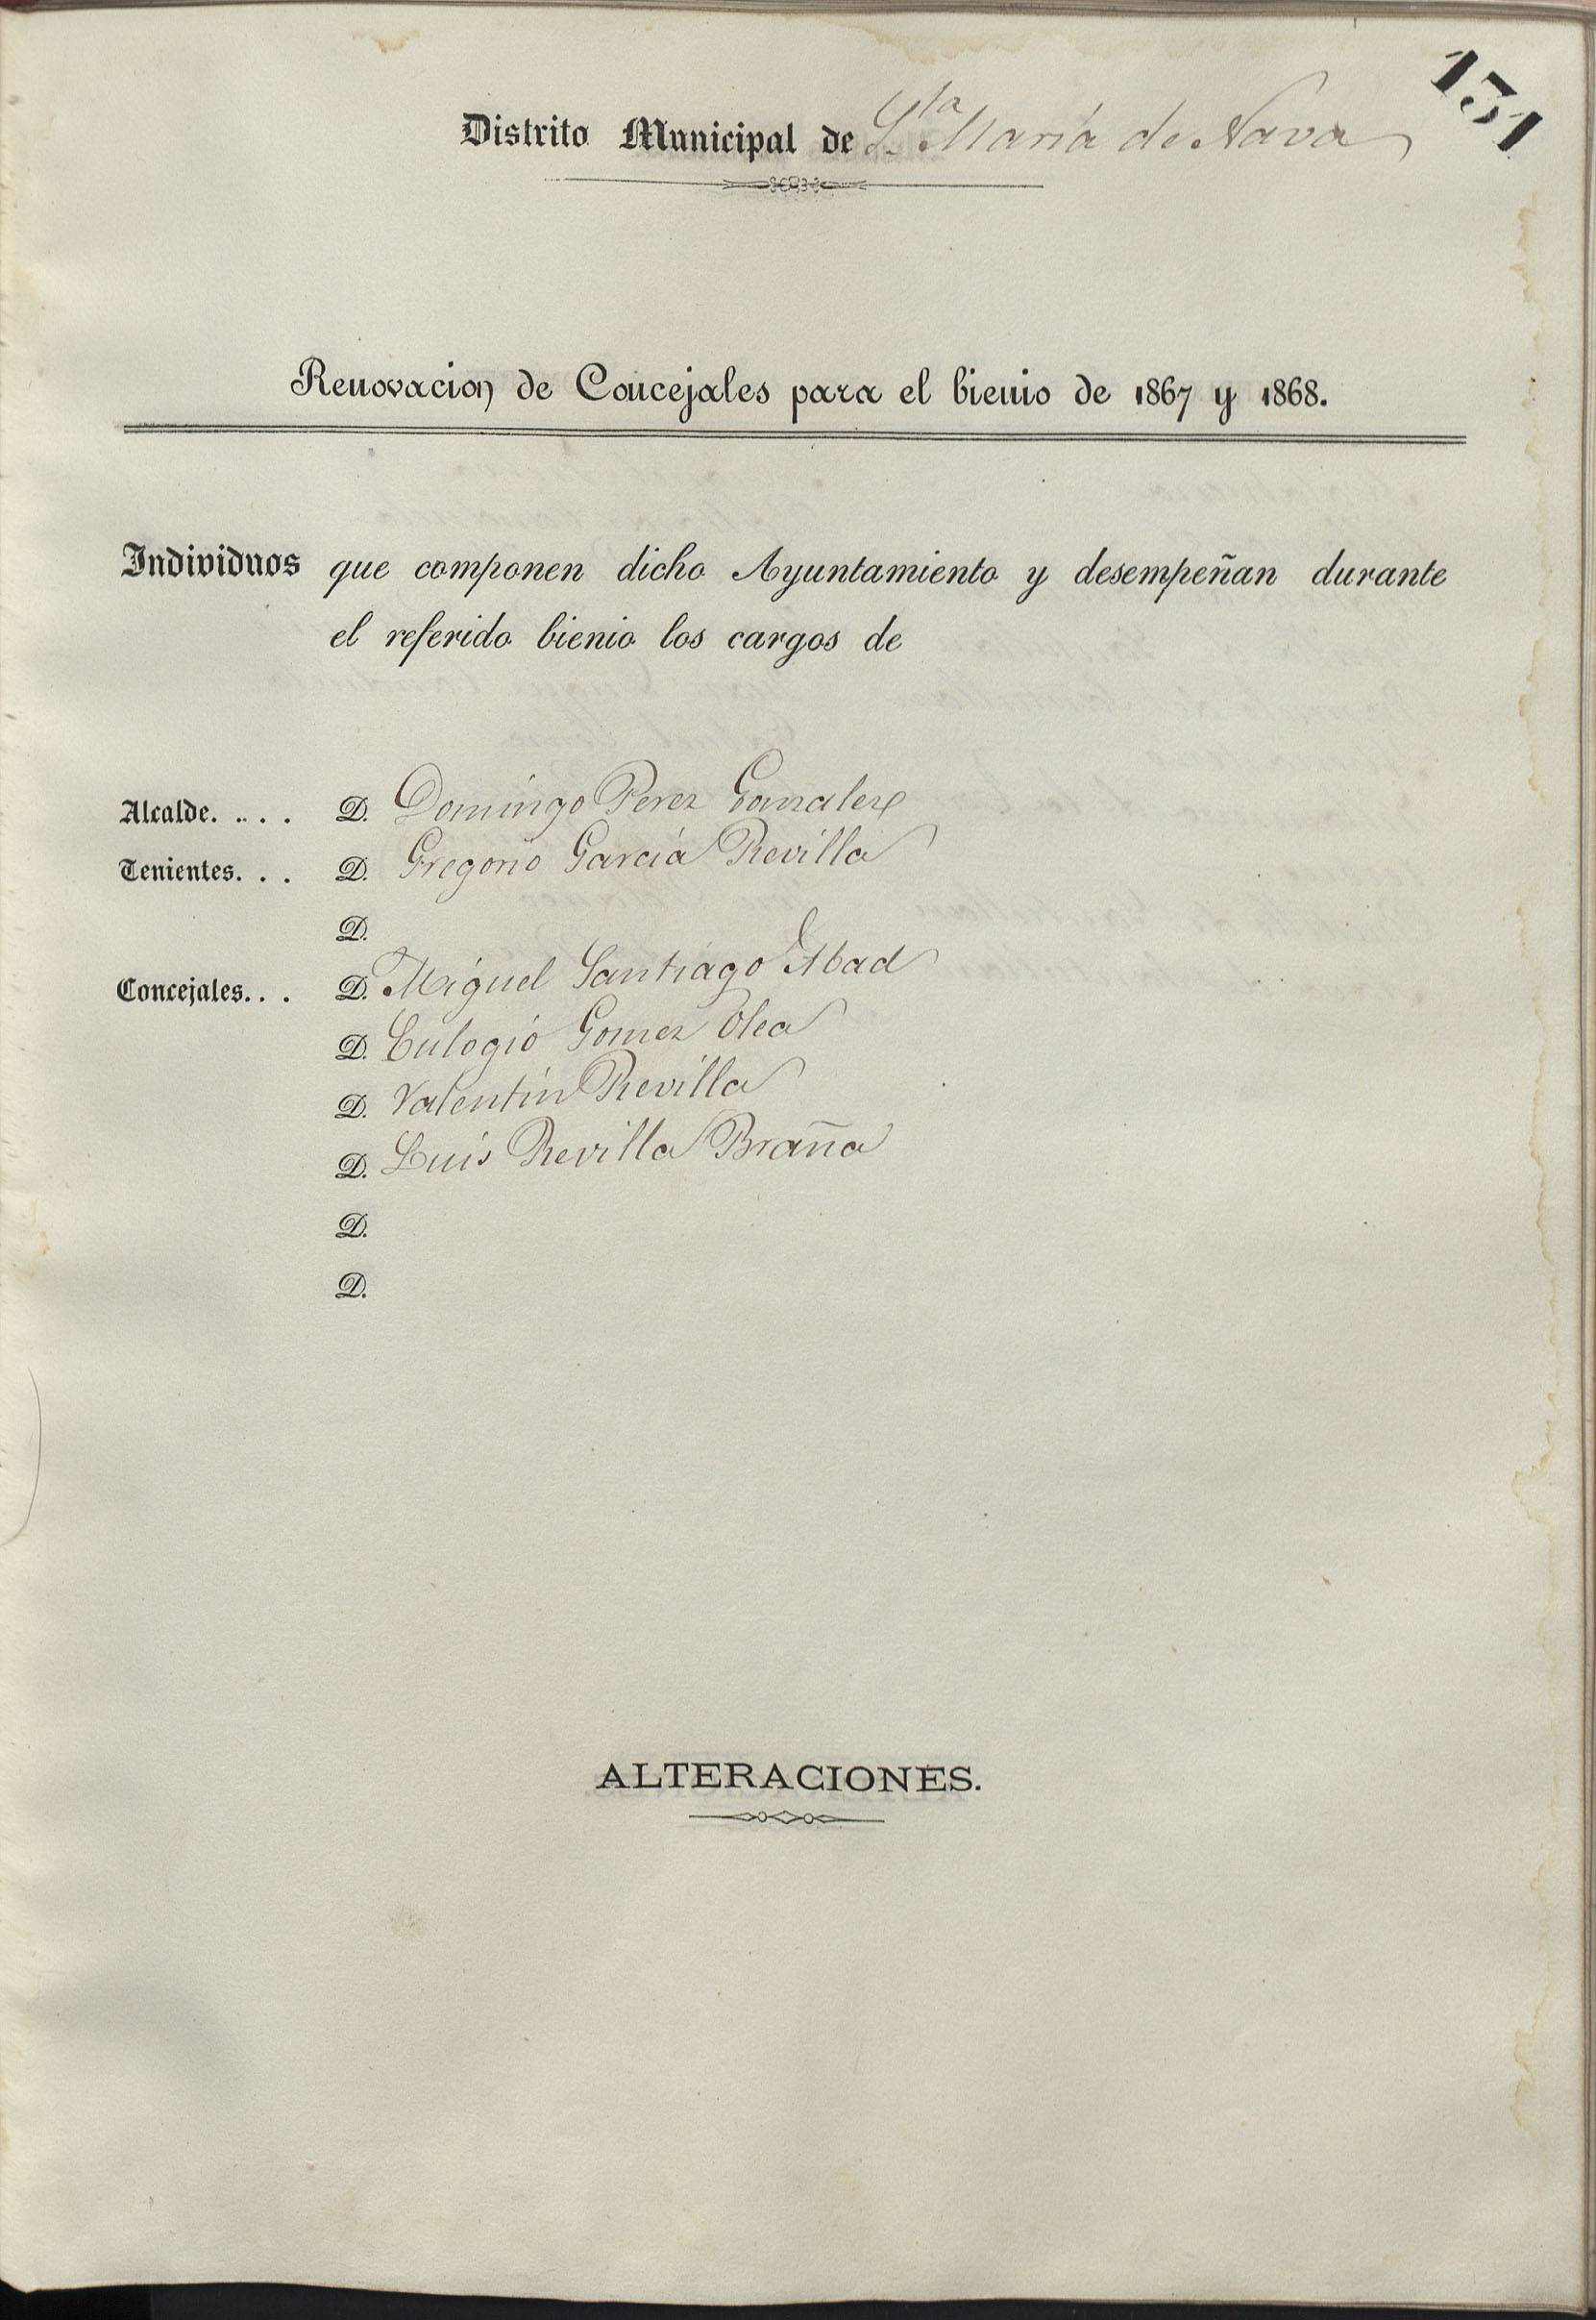 131
Distrito Municipal de Sta. María de Nava
Renovacion de Concejales para el bienio de 1867 y 1868.
Individuos que componen dicho Ayuntamiento y desempeñan durante
el referido bienio los cargos de
Alcalde. . . . D. Domingo Perez Gonzalez
Tenientes. . . D. Gregorio García Revilla
D.
Concejales. . . D. Miguel Santiago Abad
D. Eulogio Gomez Olea
D. Valentin Revilla
D. Luis Revilla Braña
D.
D.
ALTERACIONES.